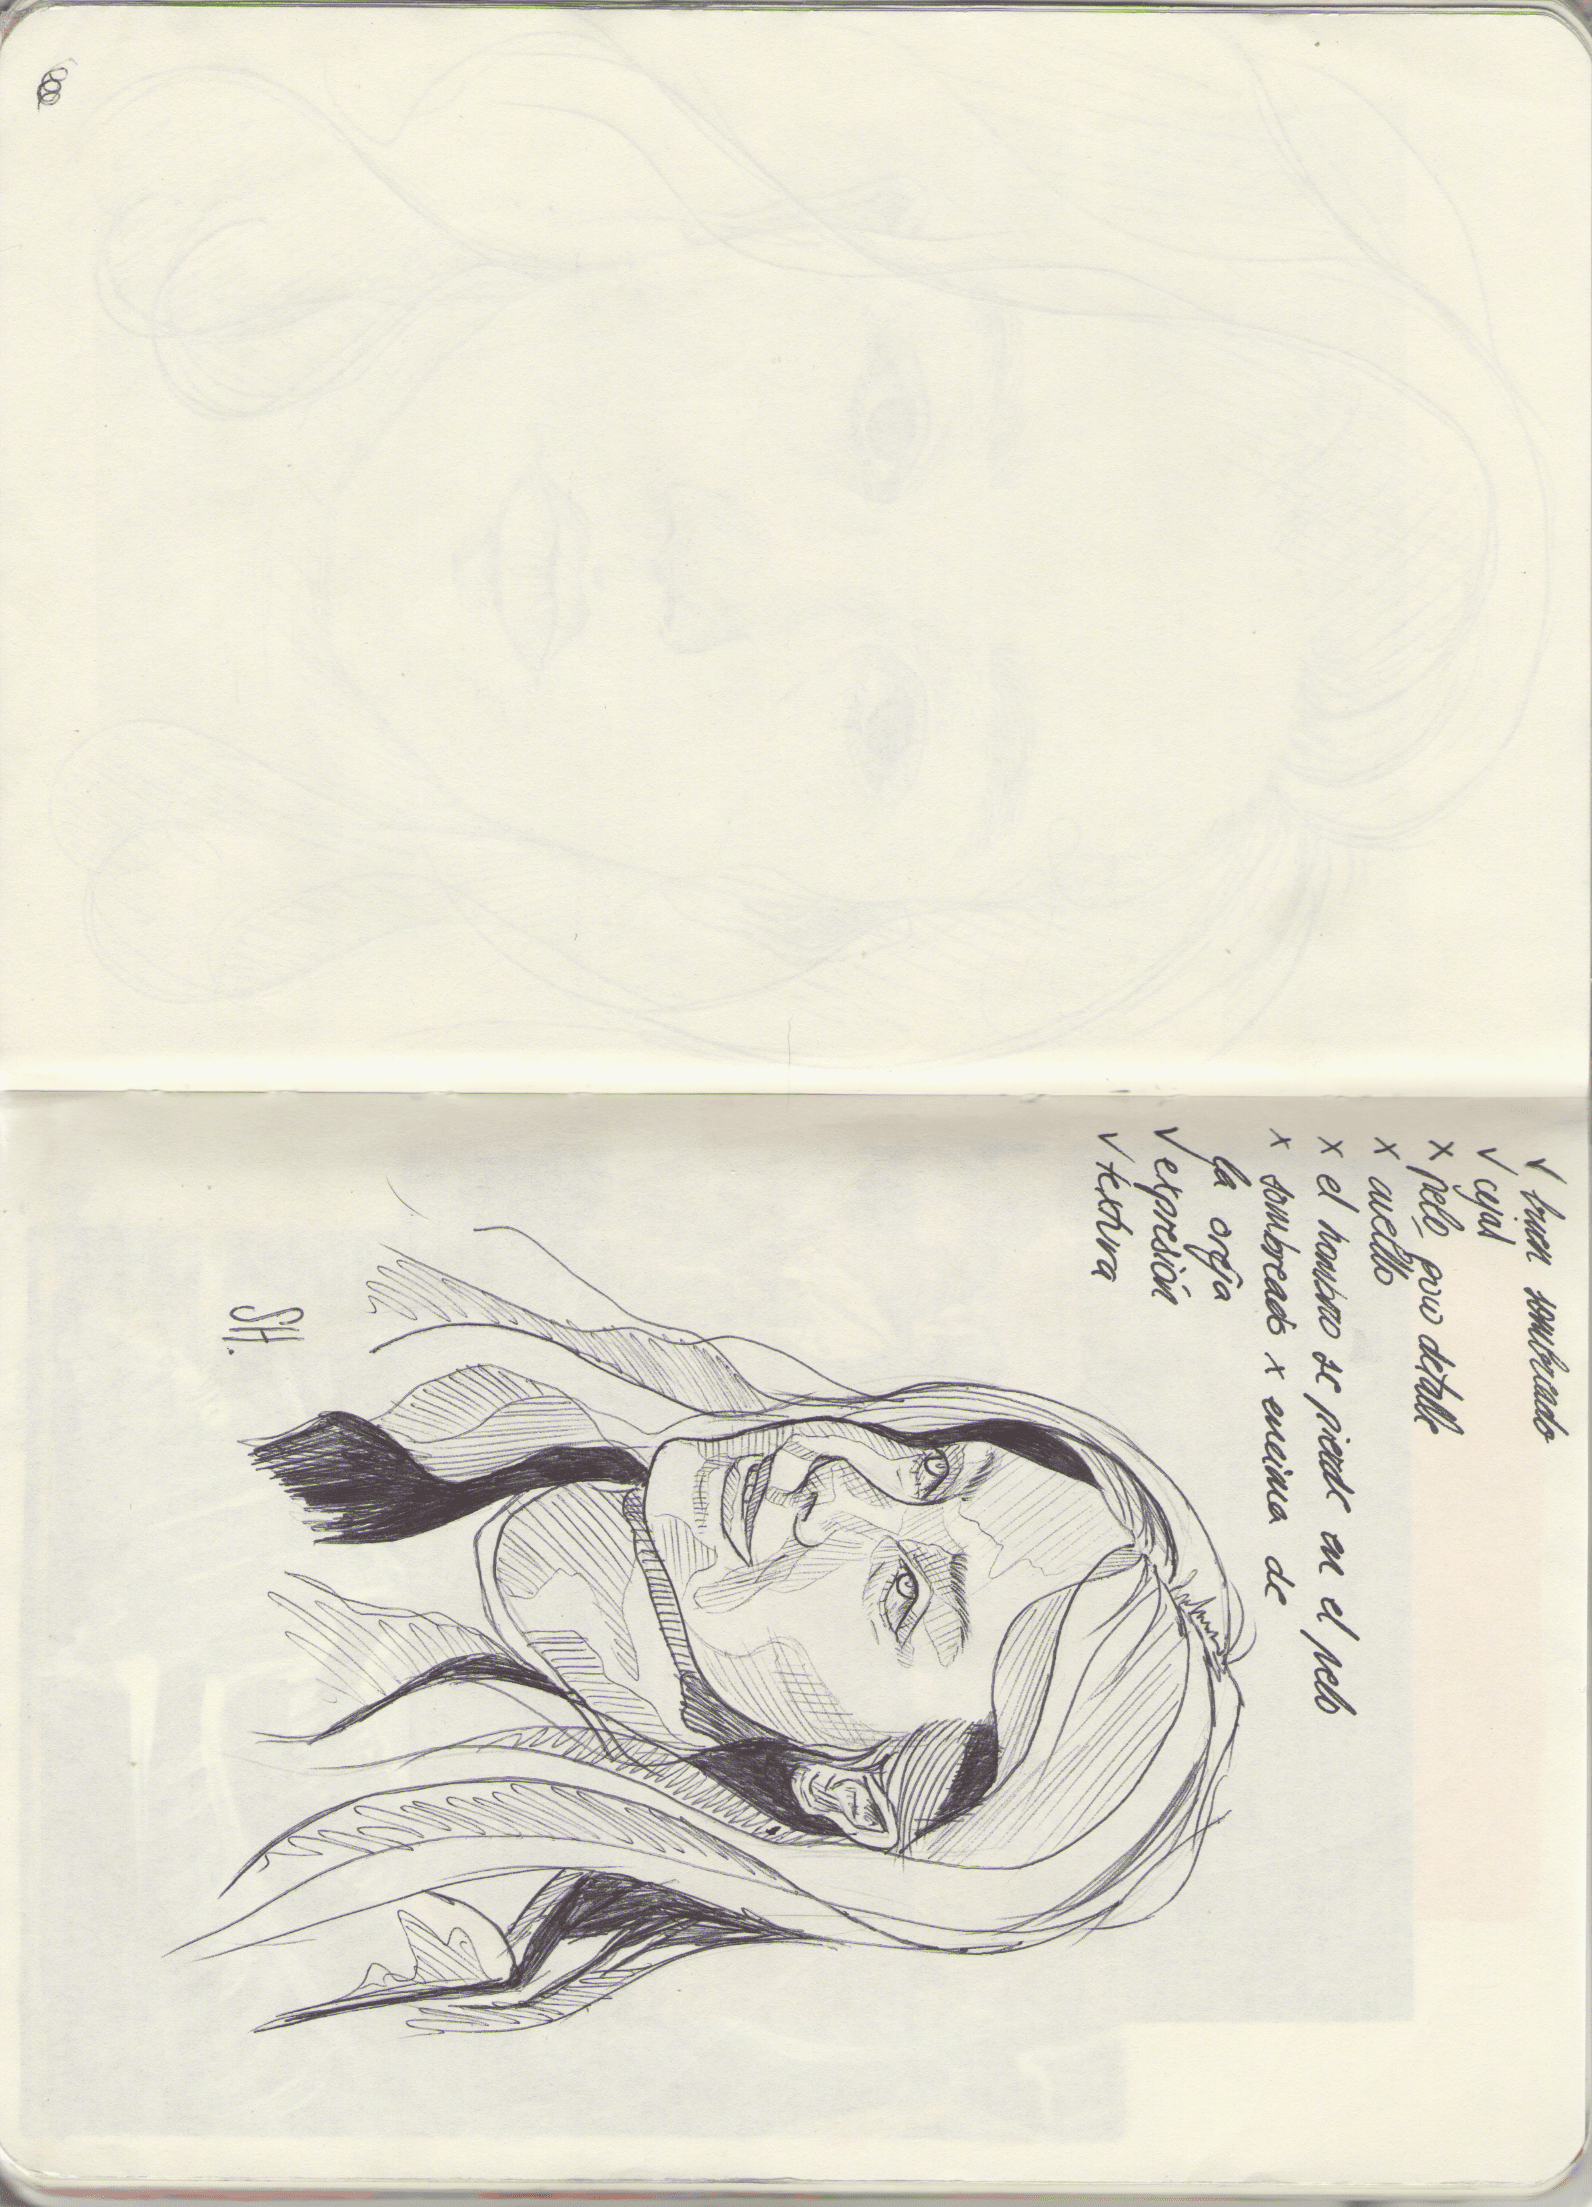 ✓ buen sombreado
✓ cejas
x pelo poco detalle
x cuello
x el hombro se pierde en el pelo
x sombreado x encima de
la oreja
✓ expresión
✓ textura
SH.